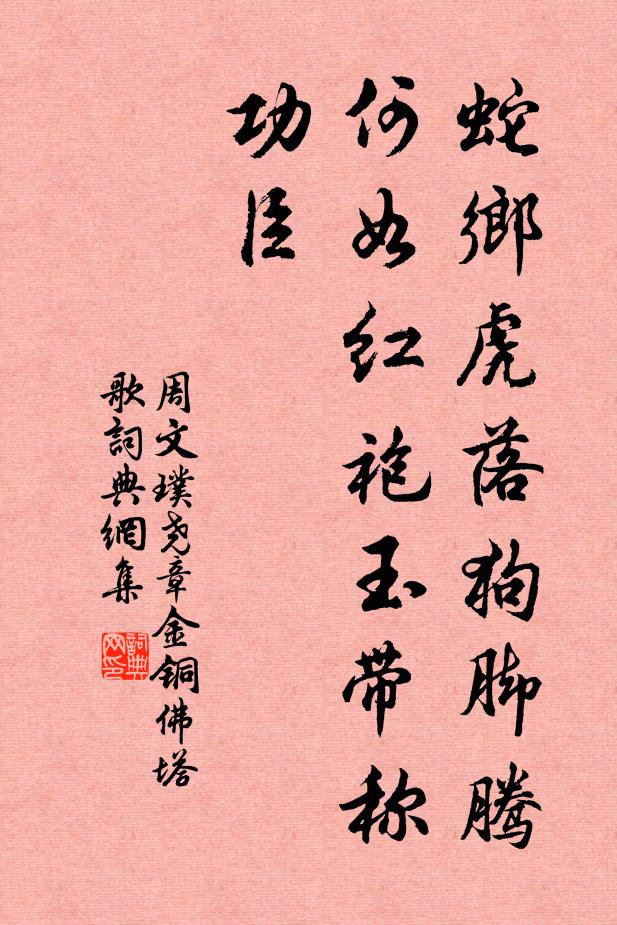 蛇鄉虎落狗脚腾
何如红袍玉带称
功臣
周文璞尧章金铜佛塔
歌詞典網集
詞典网印